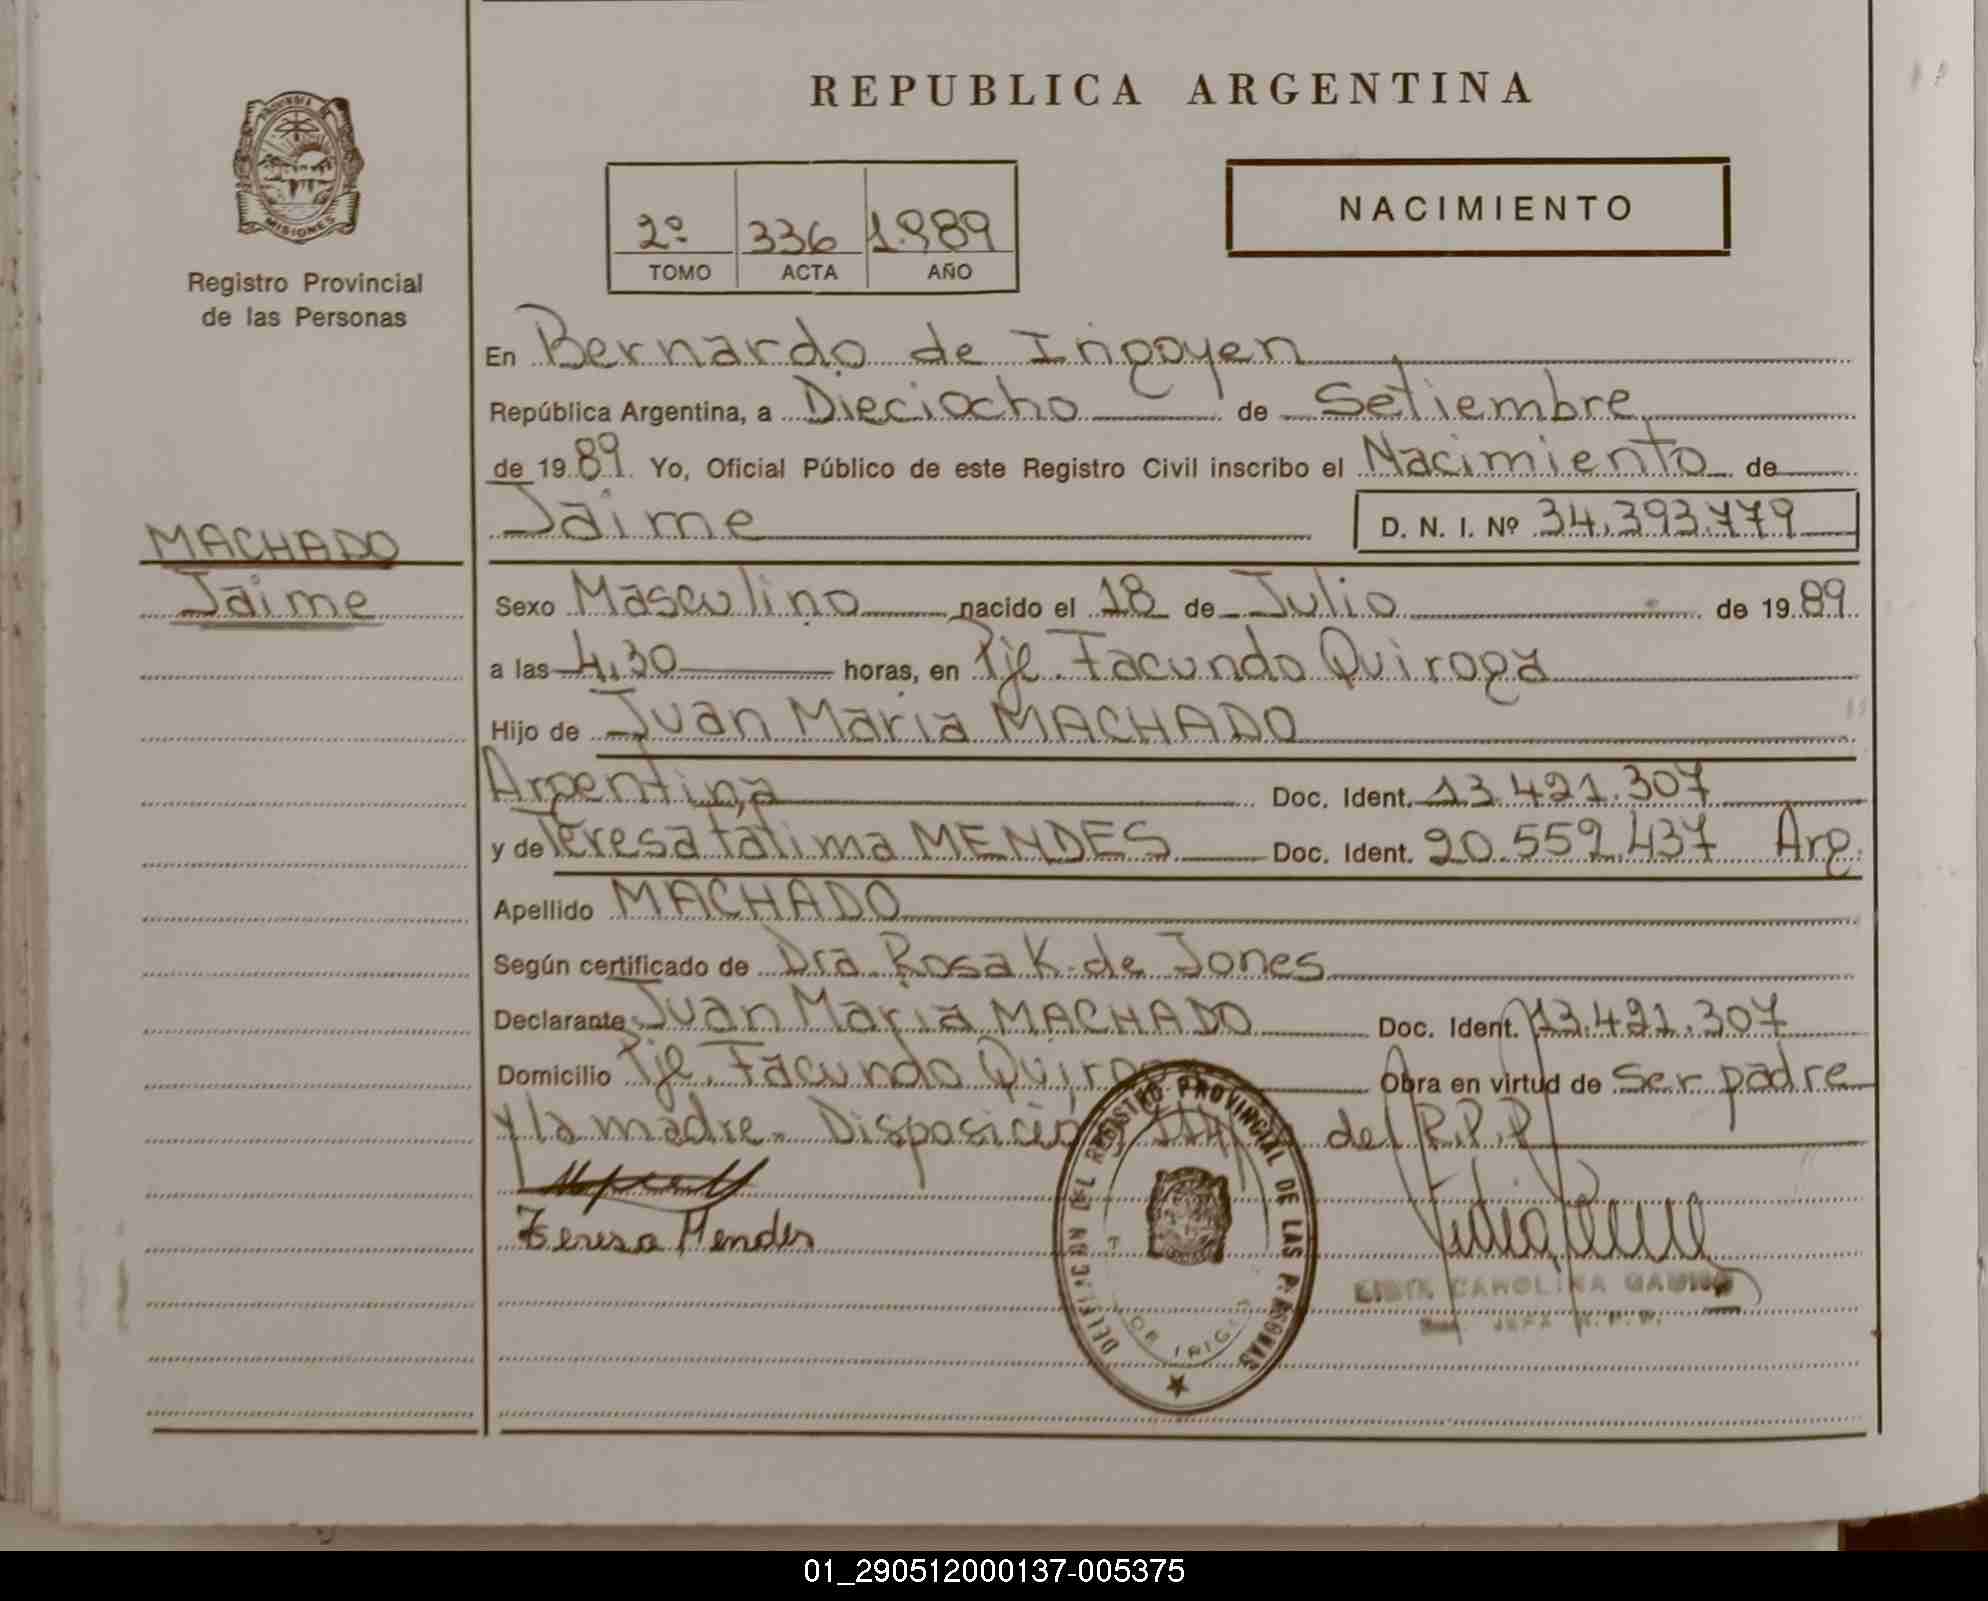 REPUBLICA ARGENTINA
PROVINCIA DE MISIONES
Registro Provincial
de las Personas
2º 336 1.989
TOMO ACTA AÑO
NACIMIENTO
En Bernardo de Irigoyen
República Argentina, a Dieciocho de Setiembre
de 19 89 Yo, Oficial Público de este Registro Civil inscribo el Nacimiento de
Jaime D. N. I. Nº 34.393.779
MACHADO
Jaime
Sexo Masculino nacido el 18 de Julio de 19 89
a las 4,30 horas, en Pje. Facundo Quiroga
Hijo de Juan Maria MACHADO
Argentina Doc. Ident. 13.421.307
y de Teresa Fatima MENDES Doc. Ident. 20.559.437 Arg.
Apellido MACHADO
Según certificado de Dra Rosa K. de Jones
Declarante Juan Maria MACHADO Doc. Ident. 13.421.307
Domicilio Pje. Facundo Quiroga Obra en virtud de ser padre
y la madre. Disposición de R.P.P
Teresa Mendes
DELEGACION DEL REGISTRO PROVINCIAL DE LAS PERSONAS
CAROLINA
JEFA R.P.P.
01_290512000137-005375